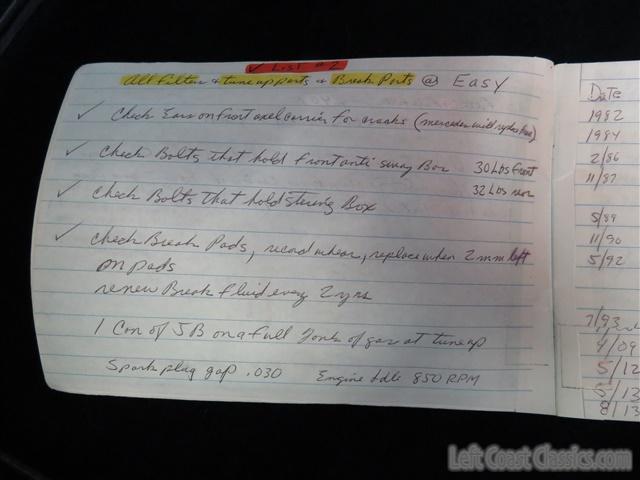 ✓ List #2
All Filter & tune up parts & Break Parts @ Easy
✓ Check Ears on front axel carrier for cracks (mercedes will replace free)
✓ Check Bolts that hold front anti sway Bar 30 Lbs front
32 Lbs rear
✓ Check Bolts that hold stering Box
✓ Check Break Pads, record whear, replace when 2 mm left
on pads
renew Break fluid every 2 yrs
1 Can of SB on a full Tank of gas at tune up
Spark plag gap .030 Engine Idle 850 RPM
Date
1982
1984
2/86
11/87
5/89
11/90
5/92
7/93
4/09
5/12
5/13
8/13
Left Coast Classics.com